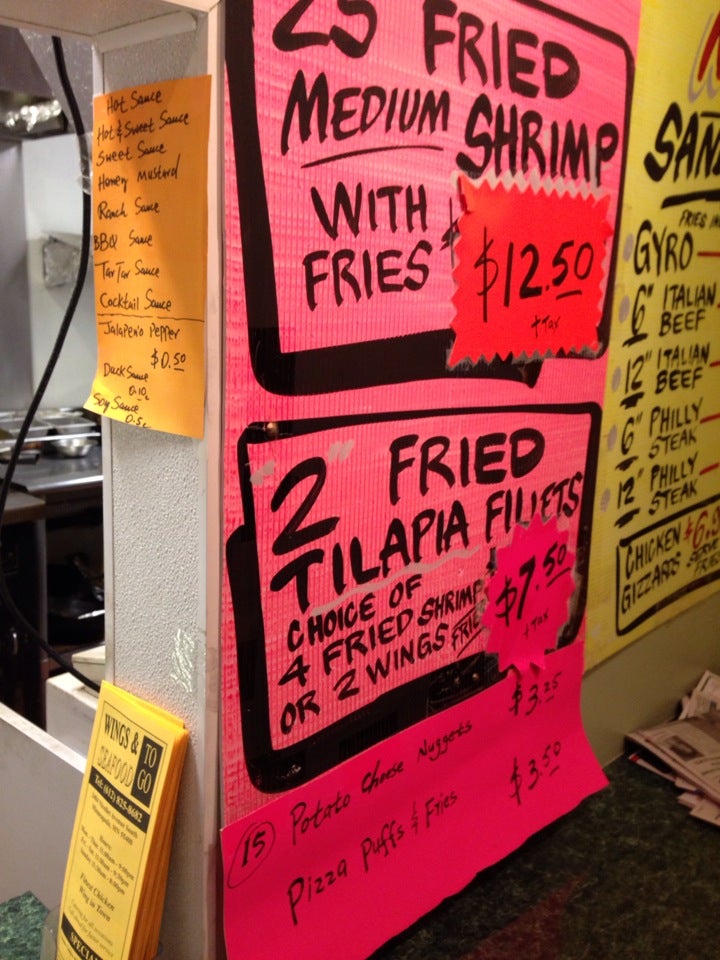 Hot Sauce
Hot & Sweet Sauce
Sweet Sauce
Honey Mustard
Ranch Sauce
BBQ Sauce
TarTar Sauce
Cocktail Sauce
Jalapeno Pepper
$0.50
Duck Sauce
0.10
Soy Sauce
25 FRIED
MEDIUM SHRIMP
WITH
FRIES
$12.50
+Tax
"2" FRIED
TILAPIA FILLETS
CHOICE OF
4 FRIED SHRIMP
OR 2 WINGS FRIES
$7.50
+Tax
15 Potato Cheese Nuggets $3.25
Pizza Puffs & Fries $3.50
FRIES
GYRO
6" ITALIAN
BEEF
12" ITALIAN
BEEF
6" PHILLY
STEAK
12" PHILLY
STEAK
CHICKEN
GIZZARDS
WINGS &
SEAFOOD
TO
GO
Tel: (612) 825-8682
Hours:
Finest Chicken
Wing in Town